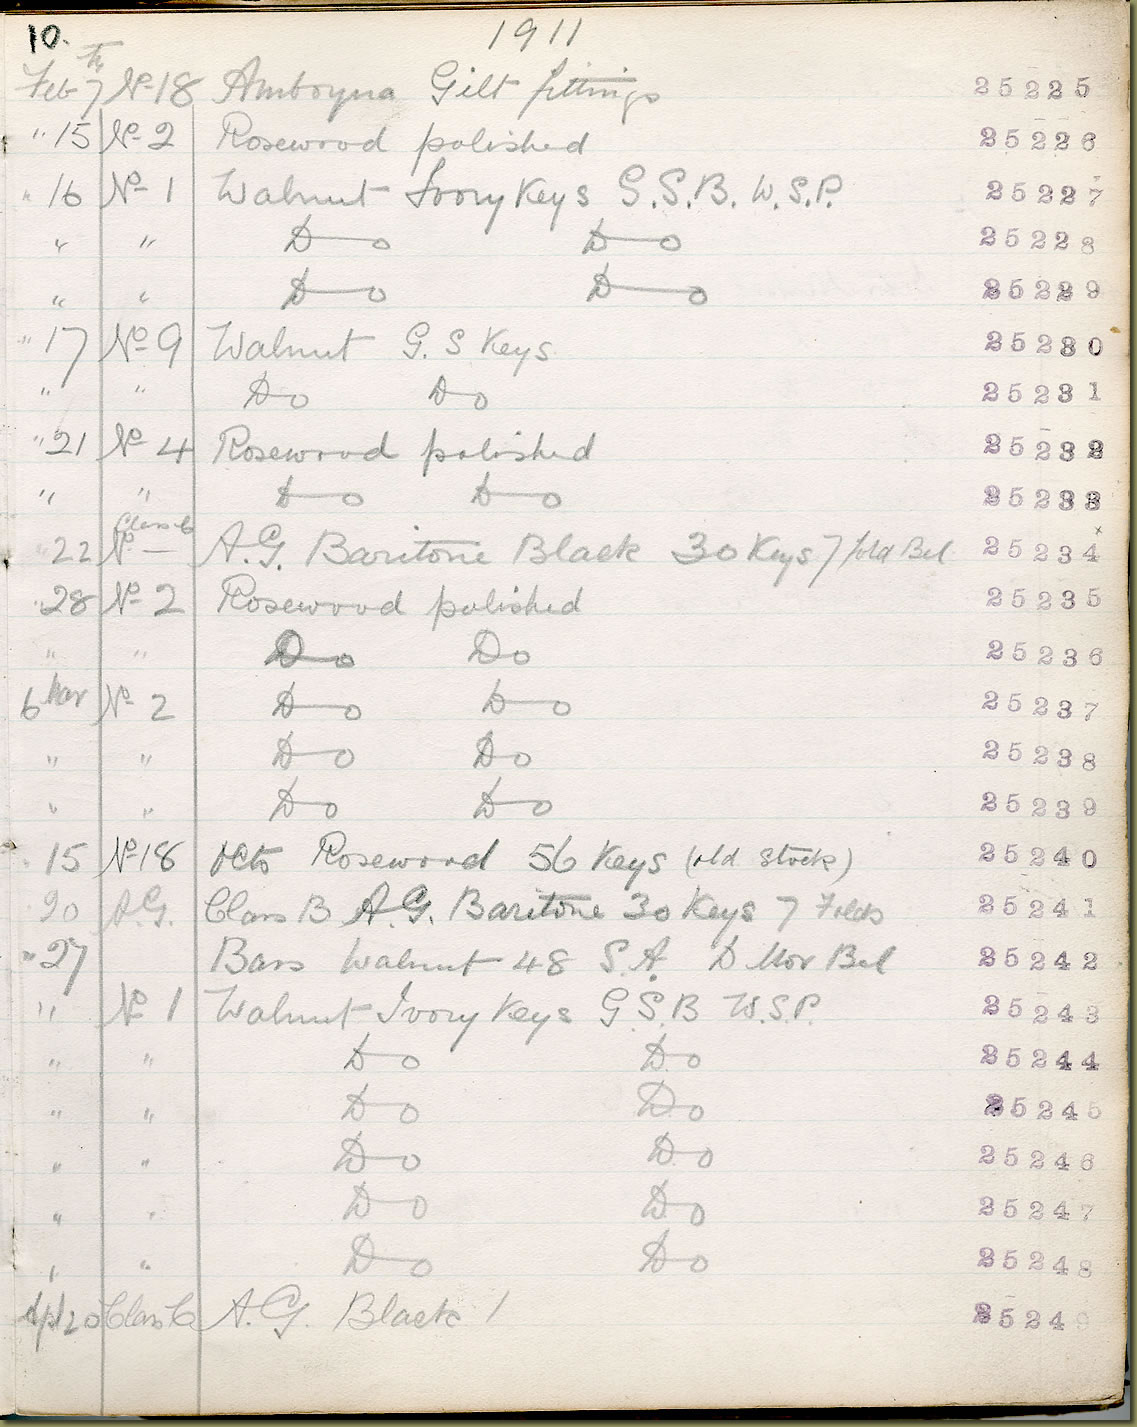 10. 1911
Feb 7th No 18 Amboyna Gilt fittings 25225
" 15 No 2 Rosewood polished 25226
" 16 No 1 Walnut Ivory Keys G.S.B. W.S.P. 25227
" " Do Do 25228
" " Do Do 25229
" 17 No 9 Walnut G.S Keys 25230
" " Do Do 25231
" 21 No 4 Rosewood polished 25232
" " Do Do 25233
" 22 Class C No — A.G. Baritone Black 30 Keys 7 fold Bel 25234 x
" 28 No 2 Rosewood polished 25235
" " Do Do 25236
6 Mar No 2 Do Do 25237
" " Do Do 25238
" " Do Do 25239
15 No 18 Octo Rosewood 56 Keys (old stock) 25240
20 A.G. Class B A.G. Baritone 30 Keys 7 Folds 25241
" 27 Bass Walnut 48 S.A. D Mor Bel 25242
" No 1 Walnut Ivory Keys G.S.B W.S.P. 25243
" " Do Do 25244
" " Do Do 25245
" " Do Do 25246
" " Do Do 25247
" " Do Do 25248
Apl 20 Class C A.G. Black 1 25249